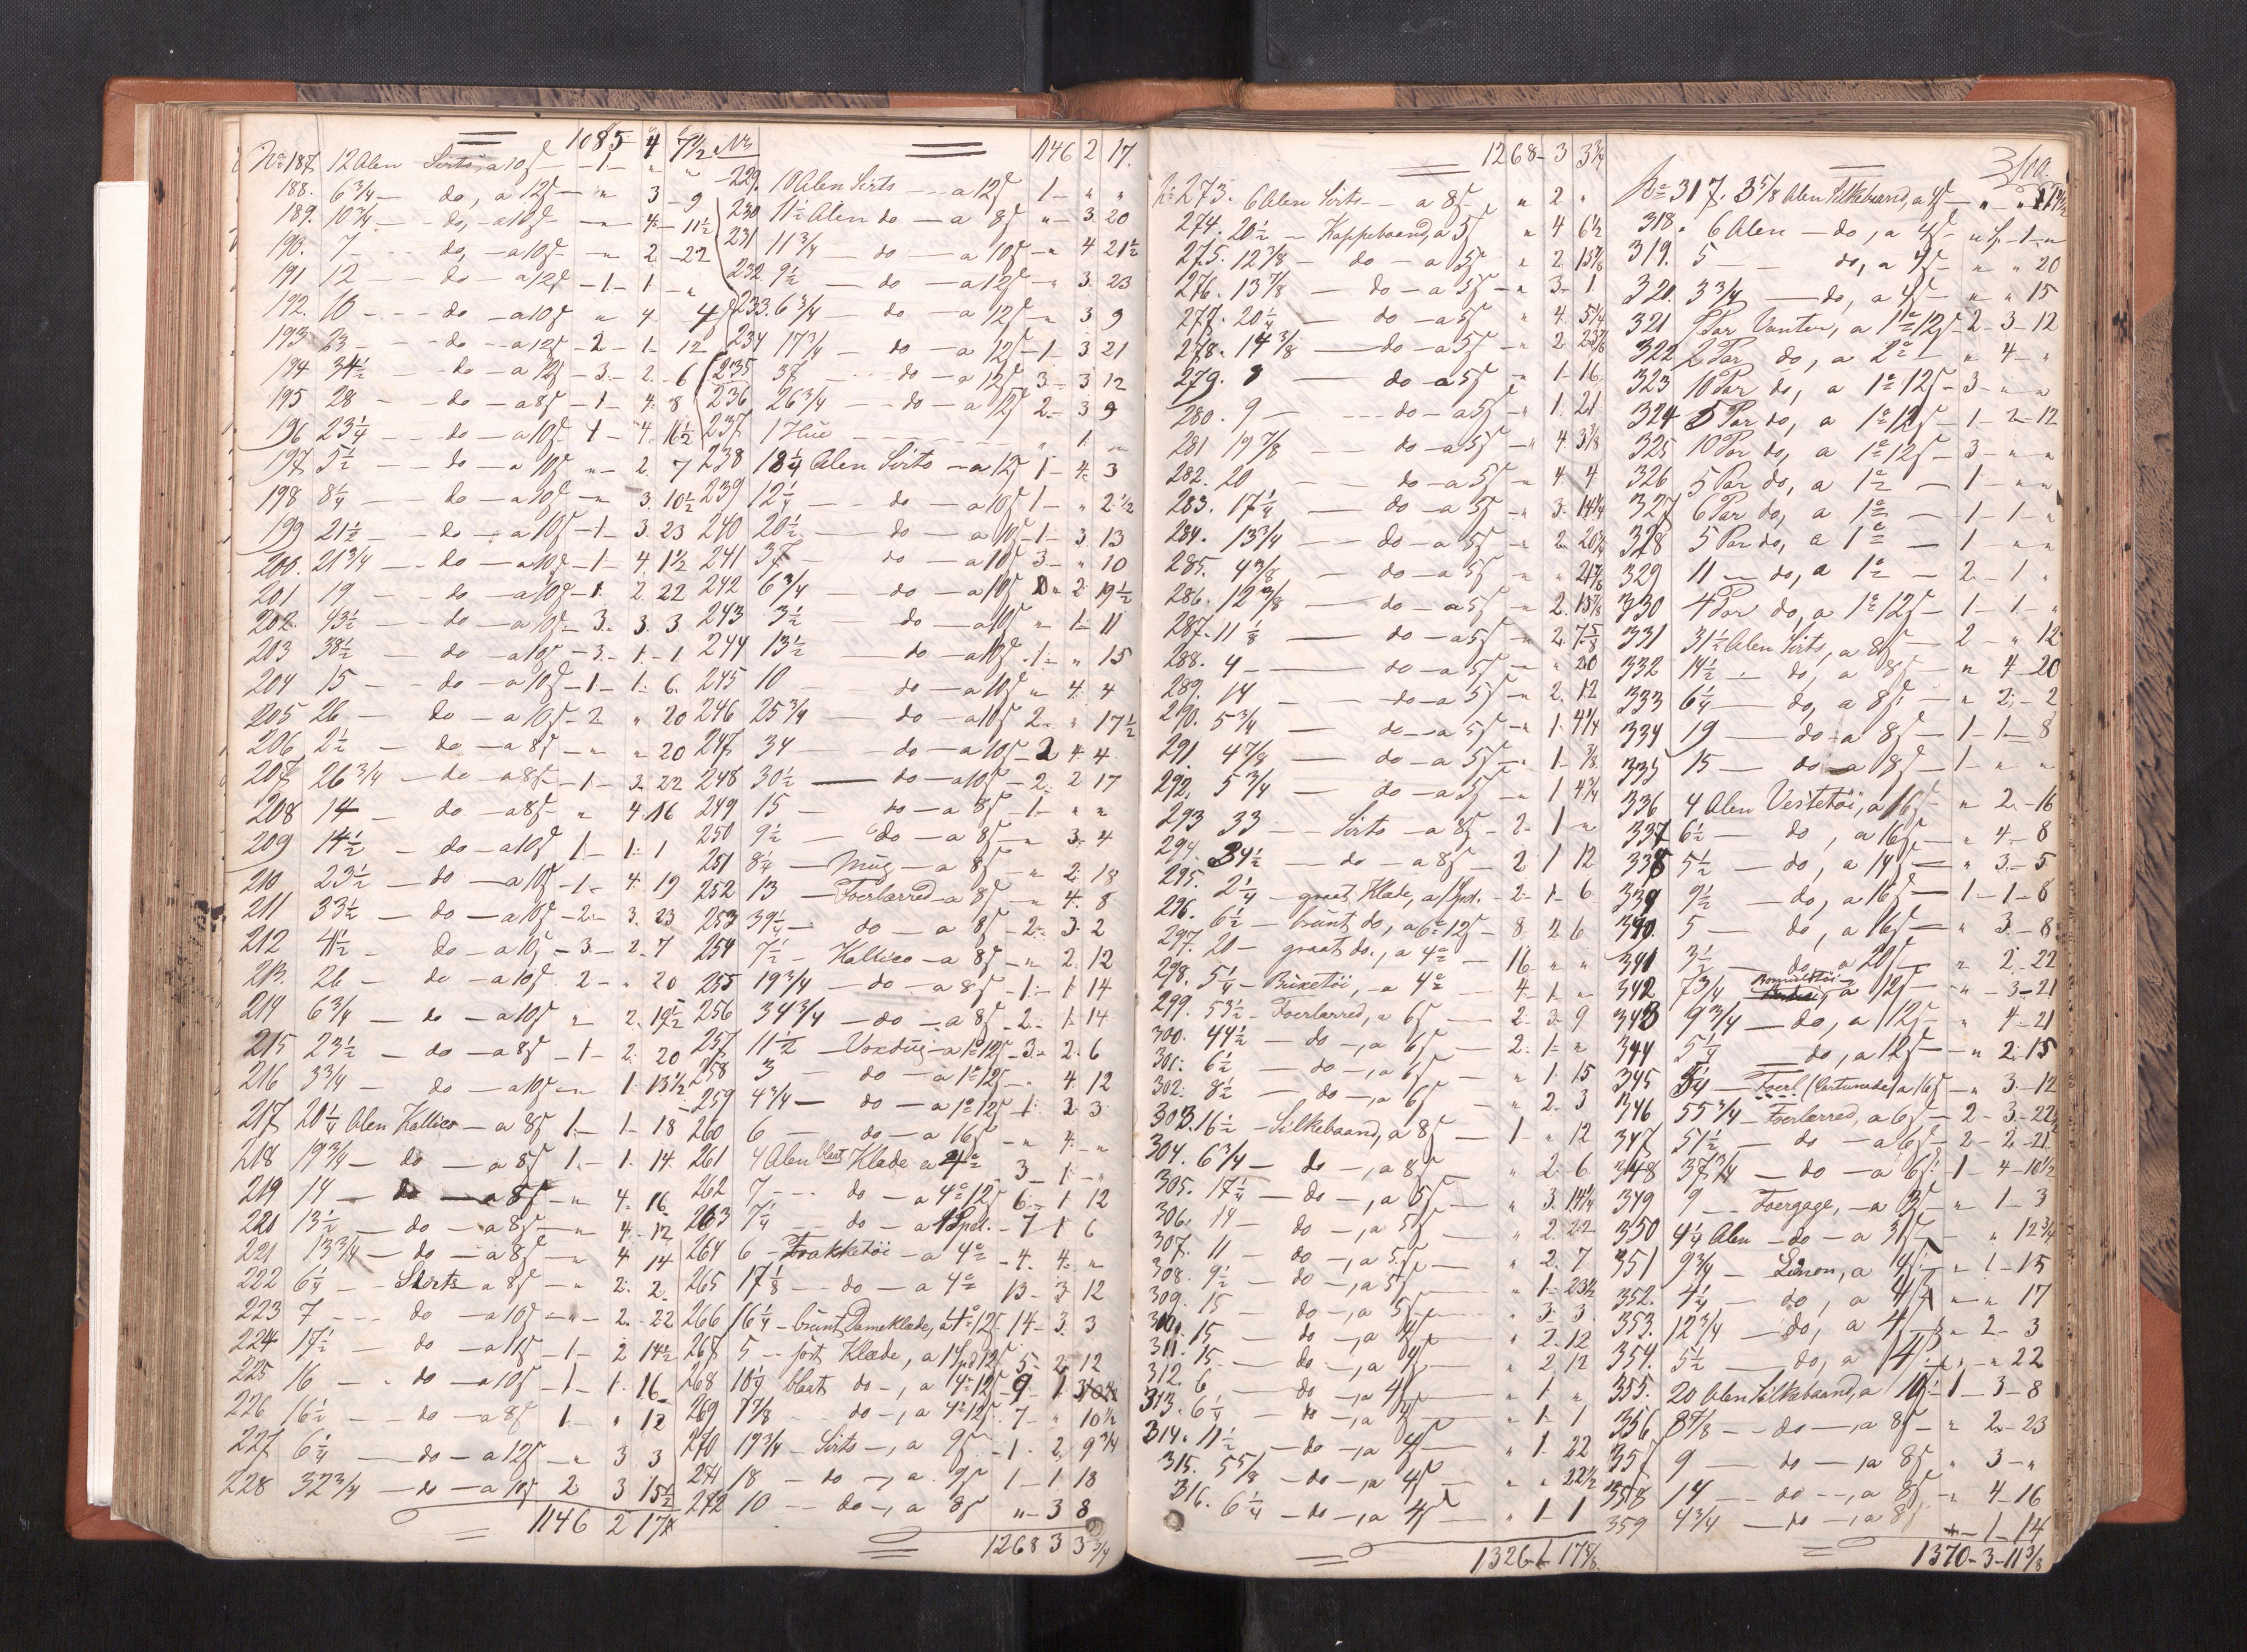 1085 4 7½
No 187 12 Alen Sirts, a 10ß - 1 - " "
188. 6¾ - do, a 12ß - " 3 - 9
189. 10¾ - do, - a 10ß - " 4 - 11½
190. 7 - do, - a 10ß - " 2 - 22
191 12 - do - a 12ß - 1 - 1 "
192. 10 - do - a 10ß " 4 4
193 23 - do - a 12ß - 2 - 1 - 12
194 34½ - do - a 12ß - 3 - 2 - 6
195 28 - do - a 8ß - 1 - 4 - 8
196 23¼ - do - a 10ß - 1 - 4 16½
197 5½ - do - a 10ß " - 2 7
198 8¼ - do - a 10ß - " 3 10½
199 21½ - do - a 10ß - 1 - 3 23
200. 21¾ - do - a 10ß - 1 - 4 1½
201 19 - do - a 10ß - 1 2 22
202. 43½ - do - a 10ß - 3 - 3 3
203 38½ - do - a 10ß - 3 - 1 - 1
204 15 - do - a 10ß - 1 - 1 6
205 26 - do - a 10ß - 2 " 20
206 2½ - do - a 8ß - " " 20
207 26¾ - do - a 8ß - 1 - 3 22
208 14 - do - a 8ß - " 4 16
209 14½ - do - a 10ß 1 - 1 1
210 23½ - do - a 10ß - 1 - 4 19
211 33½ - do - a 10ß - 2 - 3 23
212 41½ - do - a 10ß - 3 - 2 - 7
213. 26 - do - a 10ß 2 - " 20
214 6¾ - do - a 10ß " 2 19½
215 23½ - do - a 8ß - 1 - 2 20
216 3¾ - do - a 10ß - " 1 13½
217 20¼ Alen Kallico - a 8ß 1 - 1 - 18
218 19¾ - do - a 8ß 1 - 1 14
219 14 - do - a 8ß - " 4 16
220 13½ - do - a 8ß - " 4 - 12
221 13¾ - do - a 8ß - " 4 14
222 6¼ - Skirts - a 8ß - " 2 2
223 7 - do - a 10ß - " - 2 - 22
224 17½ - do - a 11ß - 1 - 2 14½
225 16 - do - a 10ß - 1 - 1 16
226 16½ - do - a 8ß 1 - " 12
227 6¼ - do - a 12ß - " 3 3
228 32¾ - do - a 10ß 2 3 15½
1146 2 17
No 1146 2 17.
229. 10 Alen Sirts - a 12ß 1 - " "
230 11½ Alen do - a 8ß " - 3 20
231 11¾ - do - a 10ß - " 4 21½
232 9½ - do - a 12ß - " 3 23
233. 6¾ - do - a 12ß - " 3 9
234 17¾ - do - a 12ß - 1 - 3 21
235 37 - do - a 12ß 3 - 3 12
236 26¾ - do - a 12ß 2 - 3 9
237 1 Hue - " 1 "
238 18¼ Alen Sirts - a 12ß 1 - 4 3
239 12¼ - do - a 10ß 1 - " 2½
240 20½ - do - a 10ß - 1 - 3 13
241 37 - do - a 10ß 3 - " 10
242 6¾ - do - a 10ß " 2 19½
243 3½ - do - a 10ß " 1 - 11
244 13½ - do - a 10ß - 1 - " 15
245 10 - do - a 10ß " 4 4
246 25¾ - do - a 10ß 2 - " 17½
247 34 - do - a 10ß - 2 4 4
248 30½ - do - a 10ß - 2 2 17
249 15 - do - a 8ß - 1 - " "
250 9½ - do - a 8ß - " 3 4
251 8¼ - Mug - a 8ß - " 2 18
252 13 - Foerlærred - a 8ß - " 4 8
253 39¼ - do - a 8ß - 2 - 3 2
254 7½ - Kallico - a 8ß - " 2 12
255 19¾ - do - a 8ß - 1 - 1 14
256 34¾ - do - a 8ß - 2 - 1 14
257 11½ - Voxdug - a 1 o 12ß - 3 - 2 6
258 3 - do - a 1 o 12ß - . 4 12
259 4¾ - do - a 1 o 12ß - 1 2 3
260 6 - do - a 16ß - " 4 - "
261 4 Alen blaat Klæde a 4 o 3 - 1 - "
262 7 - do - a 4 o 12ß 6 - 1 12
263 7¼ - do - a 1 Spd. - 7 1 6
264 6 - Frakketøi - a 4 o - 4 4 "
265 17⅛ - do - a 4 o 13 - 3 12
266 16¼ - brunt Dameklæde, a 4 o 12ß - 14 - 3 3
267 5 - sort Klæde, a 1 Spd 12ß 5 - 2 12
268 10¼ blaat do -, a 4 o 12ß - 9 - 1
269 7⅞ - do -, a 4 o 12ß 7 - " 10½
270 19¾ - Sirts -, a 9ß - 1 - 2 9¾
271 18 - do -, a 9ß 1 - 1 18
272 10 - do -, a 8ß " - 3 8
1268 3 3¾
1268 - 3 3¾
No 273. 6 Alen Sirts - a 8ß " 2 "
274. 20½ - Kappebaand, a 5ß " 4 6½
275. 12⅞ - do - a 5ß " 2 15⅞
276. 13⅞ - do - a 5ß - " 3 - 1
277. 20¼ - do - a 5ß " 4 5¼
278. 14⅜ - do - a 5ß - " 2 23⅞
279. 8 - do - a 5ß " 1 - 16
280. 9 - do - a 5ß - " 1 21
281 19⅞ - do - a 5ß - " 4 3⅜
282. 20 - do - a 5ß - " 4 4
283. 17¼ - do - a 5ß - " 3 14¼
284. 13¾ - do - a 5ß - " 2 20¾
285. 4⅜ - do - a 5ß - " " 21⅞
286. 12⅜ - do - a 5ß - " 2 15⅞
287. 11⅛ - do - a 5ß - " 2 7⅝
288. 4 - do - a 5ß - " " 20
289. 14 - do - a 5ß - " 2 12
290. 5¾ - do - a 5ß - " 1 4¾
291. 4⅞ - do - a 5ß - " 1 ⅜
292. 5¾ - do - a 5ß - " 1 4¾
293 33 - Sirts - a 8ß - 2 1 "
294. 34½ - do - a 8ß - 2 1 12
295. 2¼ - graat Klæde, a 1 Spd. - 2 1 6
296. 6½ - brunt do, a 6 o 12ß - 8 2 6
297. 20 - graat do., a 4 o - 16 " "
298. 5¼ - Buxetøi, - a 4 o - 4 - 1 "
299. 53½ - Foerlærred, a 6ß - 2 3 9
300. 44½ - do -, a 6ß - 2 1 "
301. 6½ - do -, a 6ß - " 1 15
302. 8½ - do -, a 6ß - " 2 3
303. 16½ - Silkebaand, a 8ß - 1 " 12
304. 6¾ - do -, a 8ß " 2 6
305. 17¼ - do -, a 5ß " 3 14¼
306. 14 - do -, a 5ß - " 2 22
307. 11 - do -, a 5ß - " 2 7
308. 9½ - do -, a 5ß - " 1 23½
309. 15 - do -, a 5ß - " 3 3
310. 15 - do -, a 4ß - " 2 12
311. 15 - do -, a 4ß - " 2 12
312. 6 - do -, a 4ß - " 1 "
313. 6¼ - do -, a 4ß - " 1 1
314. 11½ - do -, a 4ß - " 1 22
315. 5⅝ - do -, a 4ß - " " 22½
316. 6¼ - do -, a 4ß - " 1 1
1326 - 1 - 17⅝
310.
No 317. 3⅝ Alen Silkebaand, a 4ß - " "
318. 6 Alen - do, a 4ß - " - 1 - "
319. 5 - do, a 4ß - " " 20
320. 3¾ - do, a 4ß - " " 15
321 Par Vanter, a 1 o 12ß - 2 - 3 - 12
322 2 Par do, a 2 o - " 4 - "
323 10 Par do, a 1 o 12ß - 3 - " "
324 5 Par do, a 1 o 12ß - 1 - 2 - 12
325 10 Par do, a 1 o 12ß - 3 - " "
326 5 Par do, a 1 o - 1 - " "
327 6 Par do, a 1 o - 1 - 1 - "
328 5 Par do, a 1 o - 1 " "
329 11 - do, a 1 o - 2 - 1 "
330 4 Par do, a 1 o 12ß - 1 - 1 - "
331 31½ Alen Sirts, a 8ß - 2 - " 12
332 14½ - do, a 8ß - " 4 - 20
333 6¼ - do, a 8ß - " 2 - 2
334 19 - do - a 8ß - 1 - 1 - 8
335 15 - do - a 8ß - 1 - " "
336 4 Alen Vestetøi, a 16ß - " 2 - 16
337 6½ - do, a 16ß - " 4 - 8
338 5½ - do, a 14ß - " 3 - 5
339 9½ - do, a 16ß - 1 - 1 - 8
340. 5 - do, a 16ß - " 3 - 8
341 3½ - do, a 20ß - " 2 - 22
342 7¾ Bomuldstøi, a 12ß - " - 3 - 21
343 9¾ - do, a 12ß - " 4 - 21
344 5¼ - do, a 12ß - " 2 - 15
345 5¼ - Foerl. a 16ß - " 3 - 12
346 55¾ - Foerlærred, a 6ß - 2 - 3 - 22
347 51½ - do - a 6ß - 2 - 2 - 21
348 37¾ - do - a 6ß 1 - 4 - 10½
349 9 - Foergage, - a 3ß - " 1 - 3
350 4¼ Alen - do - a 3ß - " 12¾
351 9¾ - Linon, a 4ß - " 1 - 15
352. 4¼ - do, a 4ß - " " 17
353. 12¾ - do, a 4ß - " 2 - 3
354. 5½ - do, a 4ß - " - " 22
355. 20 Alen Silkebaand, a 10ß - 1 - 3 - 8
356 8⅞ - do -, a 8ß - " 2 - 23
357 9 - do -, a 8ß " 3 - "
358 14 - do -, a 8ß - " 4 - 16
359 4¾ - do -, a 8ß " - 1 - 14
1370 - 3 - 11⅜